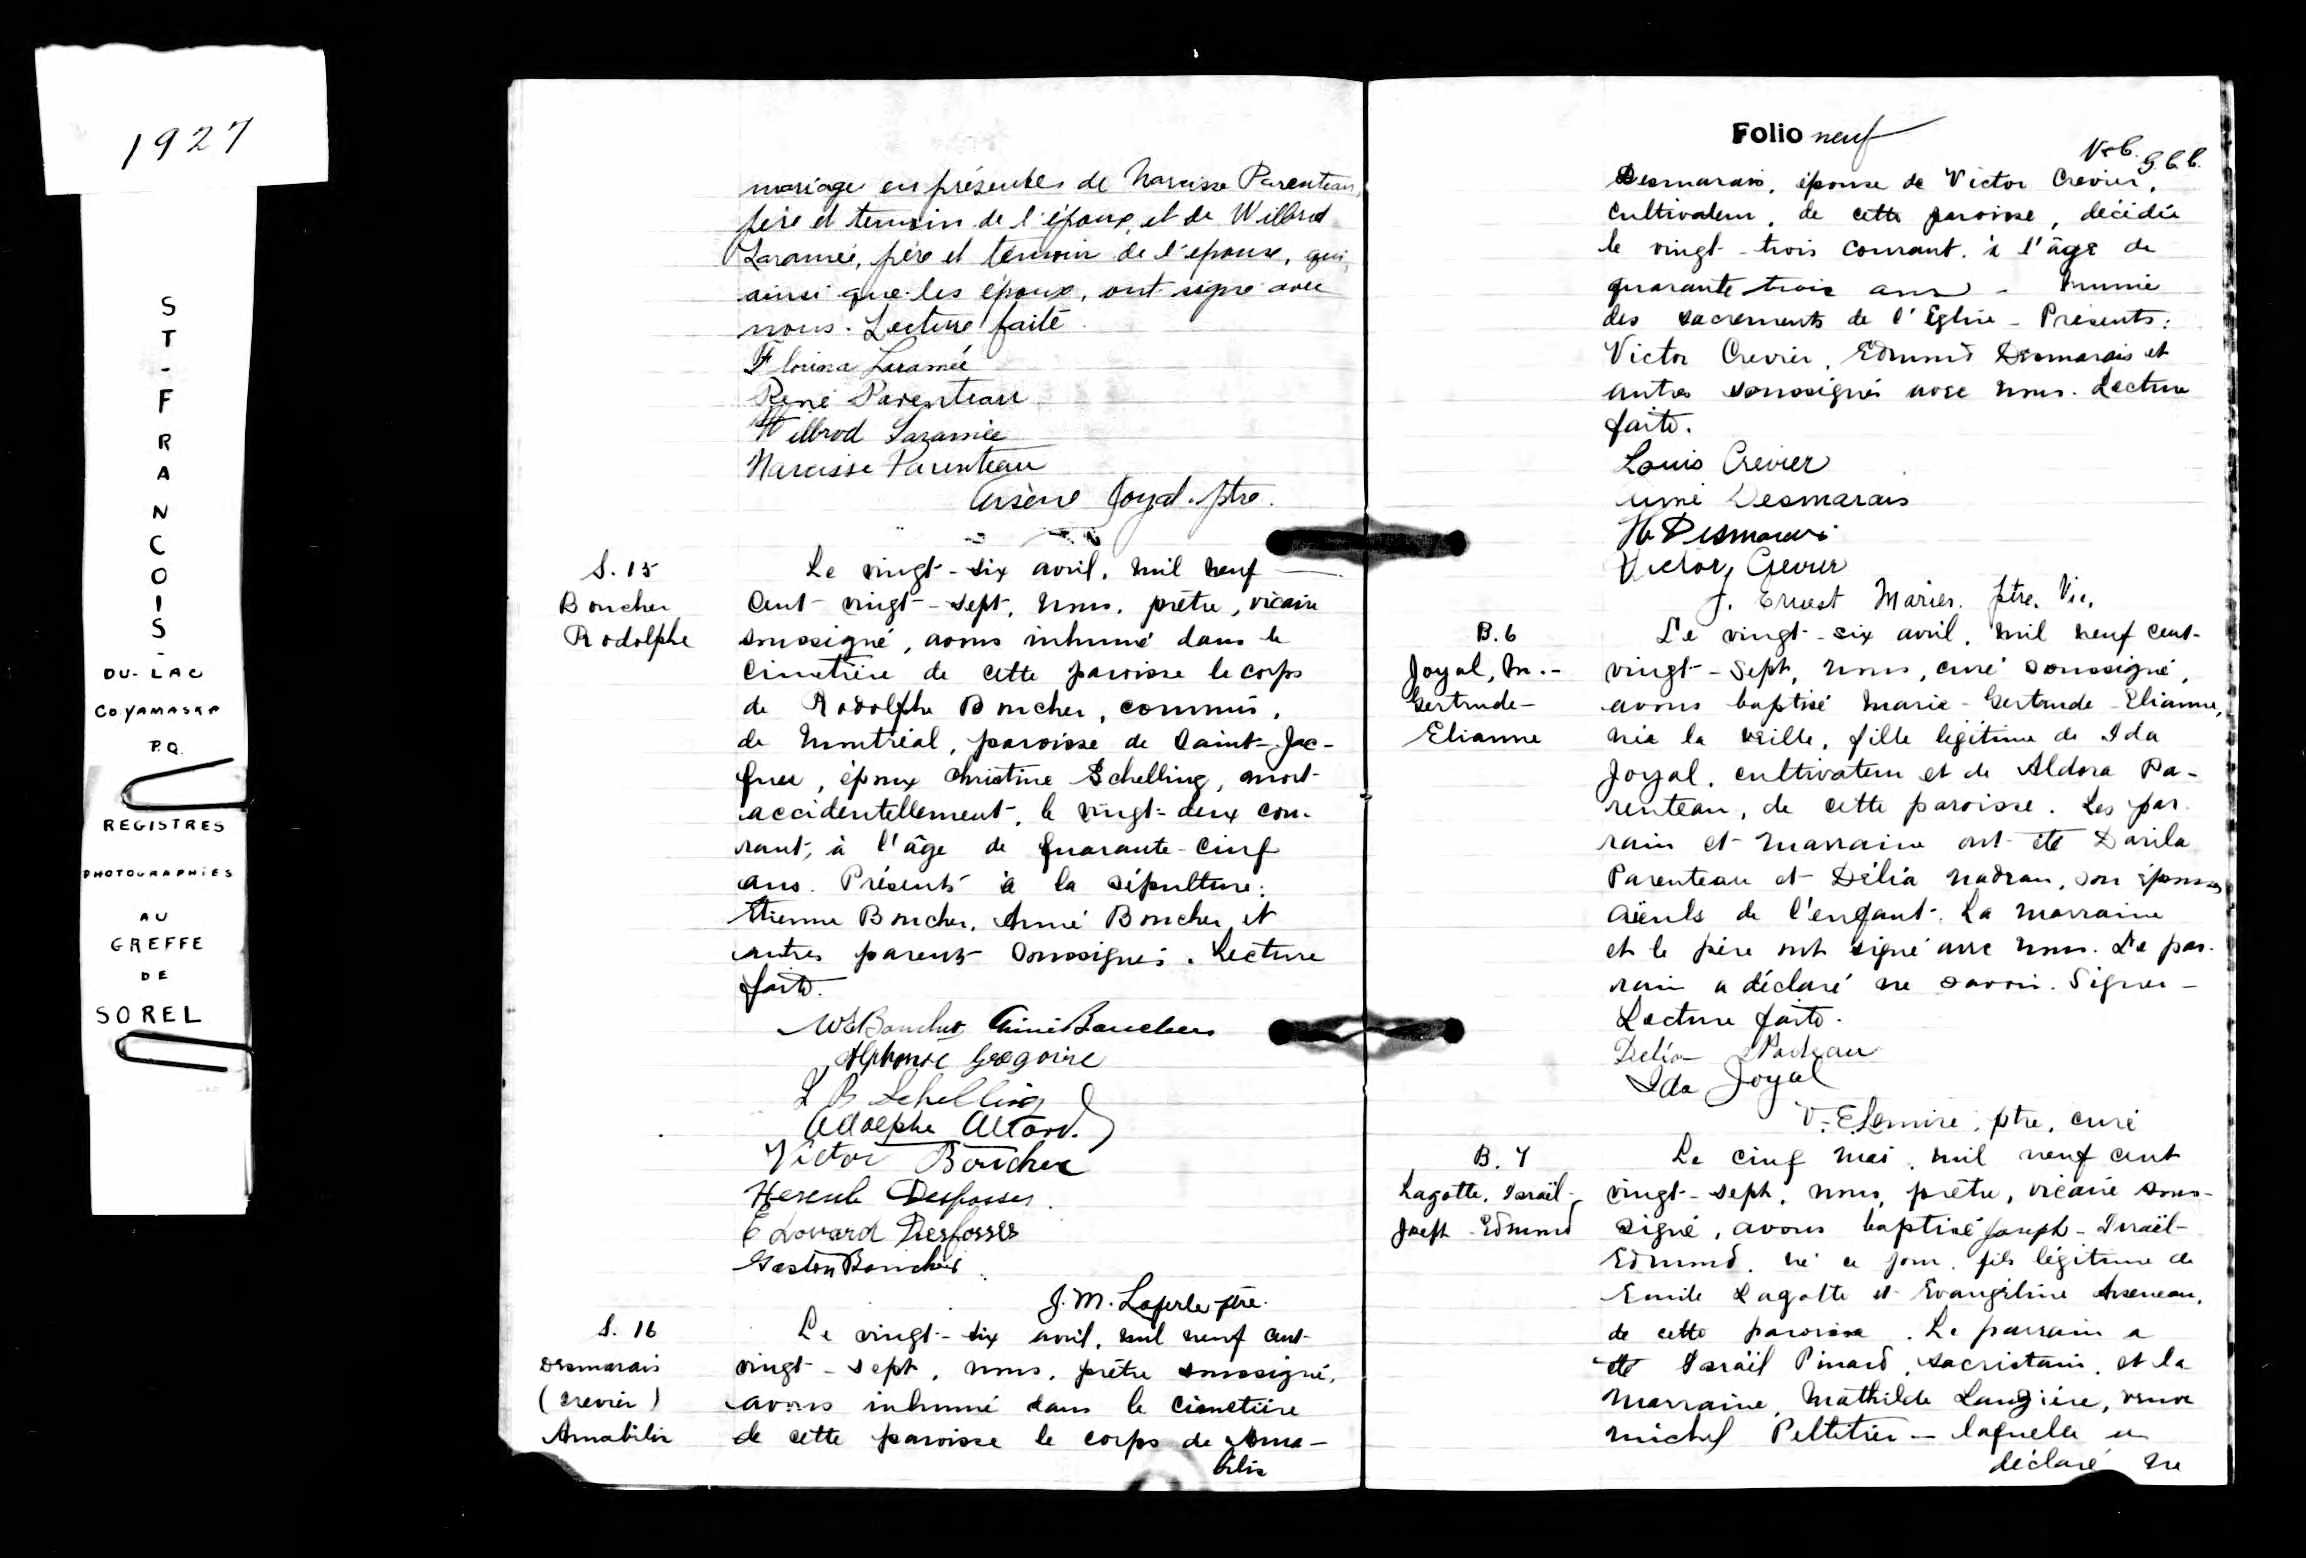 1927
ST-FRANCOIS-
DU-LAC
CO YAMASKA
P.Q.
REGISTRES
PHOTOGRAPHIES
AU
GREFFE
DE
SOREL
mariage en présence de Narcisse Parenteau,
père et témoin de l'époux, et de Wilbrod
Laramée, père et témoin de l'épouse, qui,
ainsi que les époux, ont signé avec
nous. Lecture faite.
Florina Laramée
René Parenteau
Wilbrod Laramée
Narcisse Parenteau
Arsène Joyal. ptre.
S. 15
Boucher
Rodolphe
Le vingt-six avril, mil neuf
cent vingt-sept, nous, prêtre, vicaire
soussigné, avons inhumé dans le
cimetière de cette paroisse le corps
de Rodolphe Boucher, commis,
de Montréal, paroisse de Saint-Jac-
ques, époux Christine Schelling, mort
accidentellement, le vingt-deux cou-
rant, à l'âge de quarante-cinq
ans. Présents à la sépulture:
Etienne Boucher, Aimé Boucher, et
autres parents soussignés. Lecture
faite.
Boucher Aimé Boucher
Alphonse Gregoire
L B Schelling
Adolphe Allard.
Victor Boucher
Hercule Desfosses.
Edouard Desfosses
Gaston Boucher
J. M. Laferle ptre.
S. 16
Desmarais
(Crevier)
Amabilis
Le vingt-six avril, mil neuf cent
vingt-sept, nous, prêtre soussigné,
avons inhumé dans le cimetière
de cette paroisse le corps de Ama-
bilis
Folio neuf
V. E. L.
Desmarais, épouse de Victor Crevier,
cultivateur, de cette paroisse, décédée
le vingt-trois courant, à l'âge de
quarante trois ans - munie
des sacrements de l'Eglise - Présents:
Victor Crevier, Edmond Desmarais et
autres soussignés avec nous. Lecture
faite.
Louis Crevier
Aimé Desmarais
H. Desmarais
Victor Crevier
J. Ernest Marier. ptre. Vic.
B. 6
Joyal, M.-
Gertrude-
Elianne
Le vingt-six avril, mil neuf cent-
vingt-sept, nous, curé soussigné,
avons baptisé Marie-Gertrude-Elianne,
née la veille, fille légitime de Ida
Joyal, cultivateur et de Aldora Pa-
renteau, de cette paroisse. Les par-
rain et marraine ont été Davila
Parenteau et Délia Nadeau, son épouse,
aïeuls de l'enfant. La marraine
et le père ont signé avec nous. Le par-
rain a déclaré ne savoir signer -
Lecture faite.
Delia Nadeau
Ida Joyal
V. E Lemire, ptre, curé
B. 7
Lagotte, Israël-
Joseph-Edmond
Le cinq mai, mil neuf cent
vingt-sept, nous, prêtre, vicaire sous-
signé, avons baptisé Joseph-Israël-
Edmond, né ce jour, fils légitime de
Emile Lagotte et Evangéline Arseneau,
de cette paroisse. Le parrain a
été Israël Pinard, sacristain, et la
marraine, Mathilde Lauzière, veuve
Michel Pelletier - laquelle a
déclaré ne